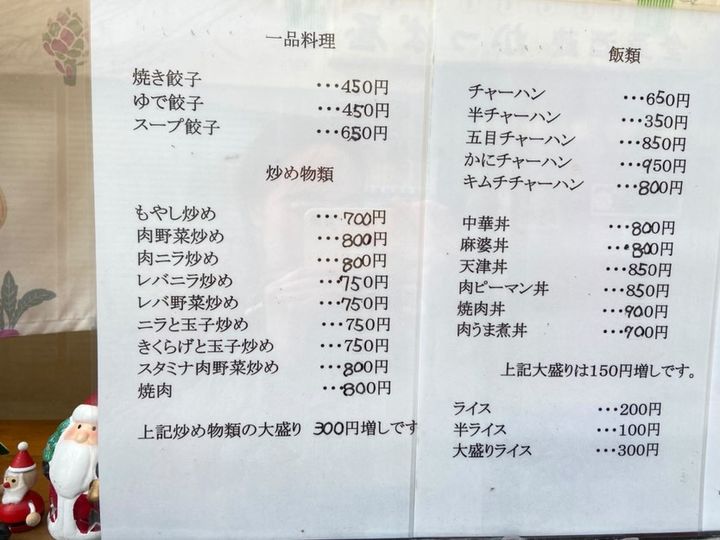 一品料理
焼き餃子 ・・・450円
ゆで餃子 ・・・450円
スープ餃子 ・・・650円
炒め物類
もやし炒め ・・・700円
肉野菜炒め ・・・800円
肉ニラ炒め ・・・800円
レバニラ炒め ・・・750円
レバ野菜炒め ・・・750円
ニラと玉子炒め ・・・750円
きくらげと玉子炒め ・・・750円
スタミナ肉野菜炒め ・・・800円
焼肉 ・・・800円
上記炒め物類の大盛り 300円増しです
飯類
チャーハン ・・・650円
半チャーハン ・・・350円
五目チャーハン ・・・850円
かにチャーハン ・・・950円
キムチチャーハン ・・・800円
中華丼 ・・・800円
麻婆丼 ・・・800円
天津丼 ・・・850円
肉ピーマン丼 ・・・850円
焼肉丼 ・・・900円
肉うま煮丼 ・・・900円
上記大盛りは150円増しです。
ライス ・・・200円
半ライス ・・・100円
大盛りライス ・・・300円